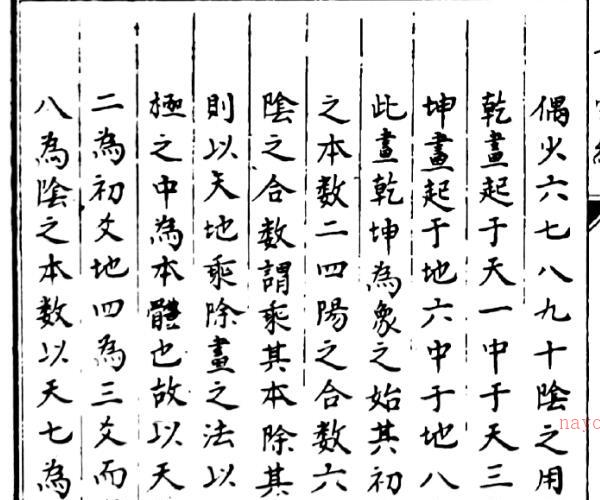 偶火六七八九十陰之用
乾畫起于天一中于天三
坤畫起于地六中于地八
此畫乾坤為象之始其初
之本數二四陽之合數六
陰之合數謂乘其本除其
則以天地乘除畫之法以
極之中為本體也故以天
二為初爻地四為三爻而
八為陰之本數以天七為
nayo